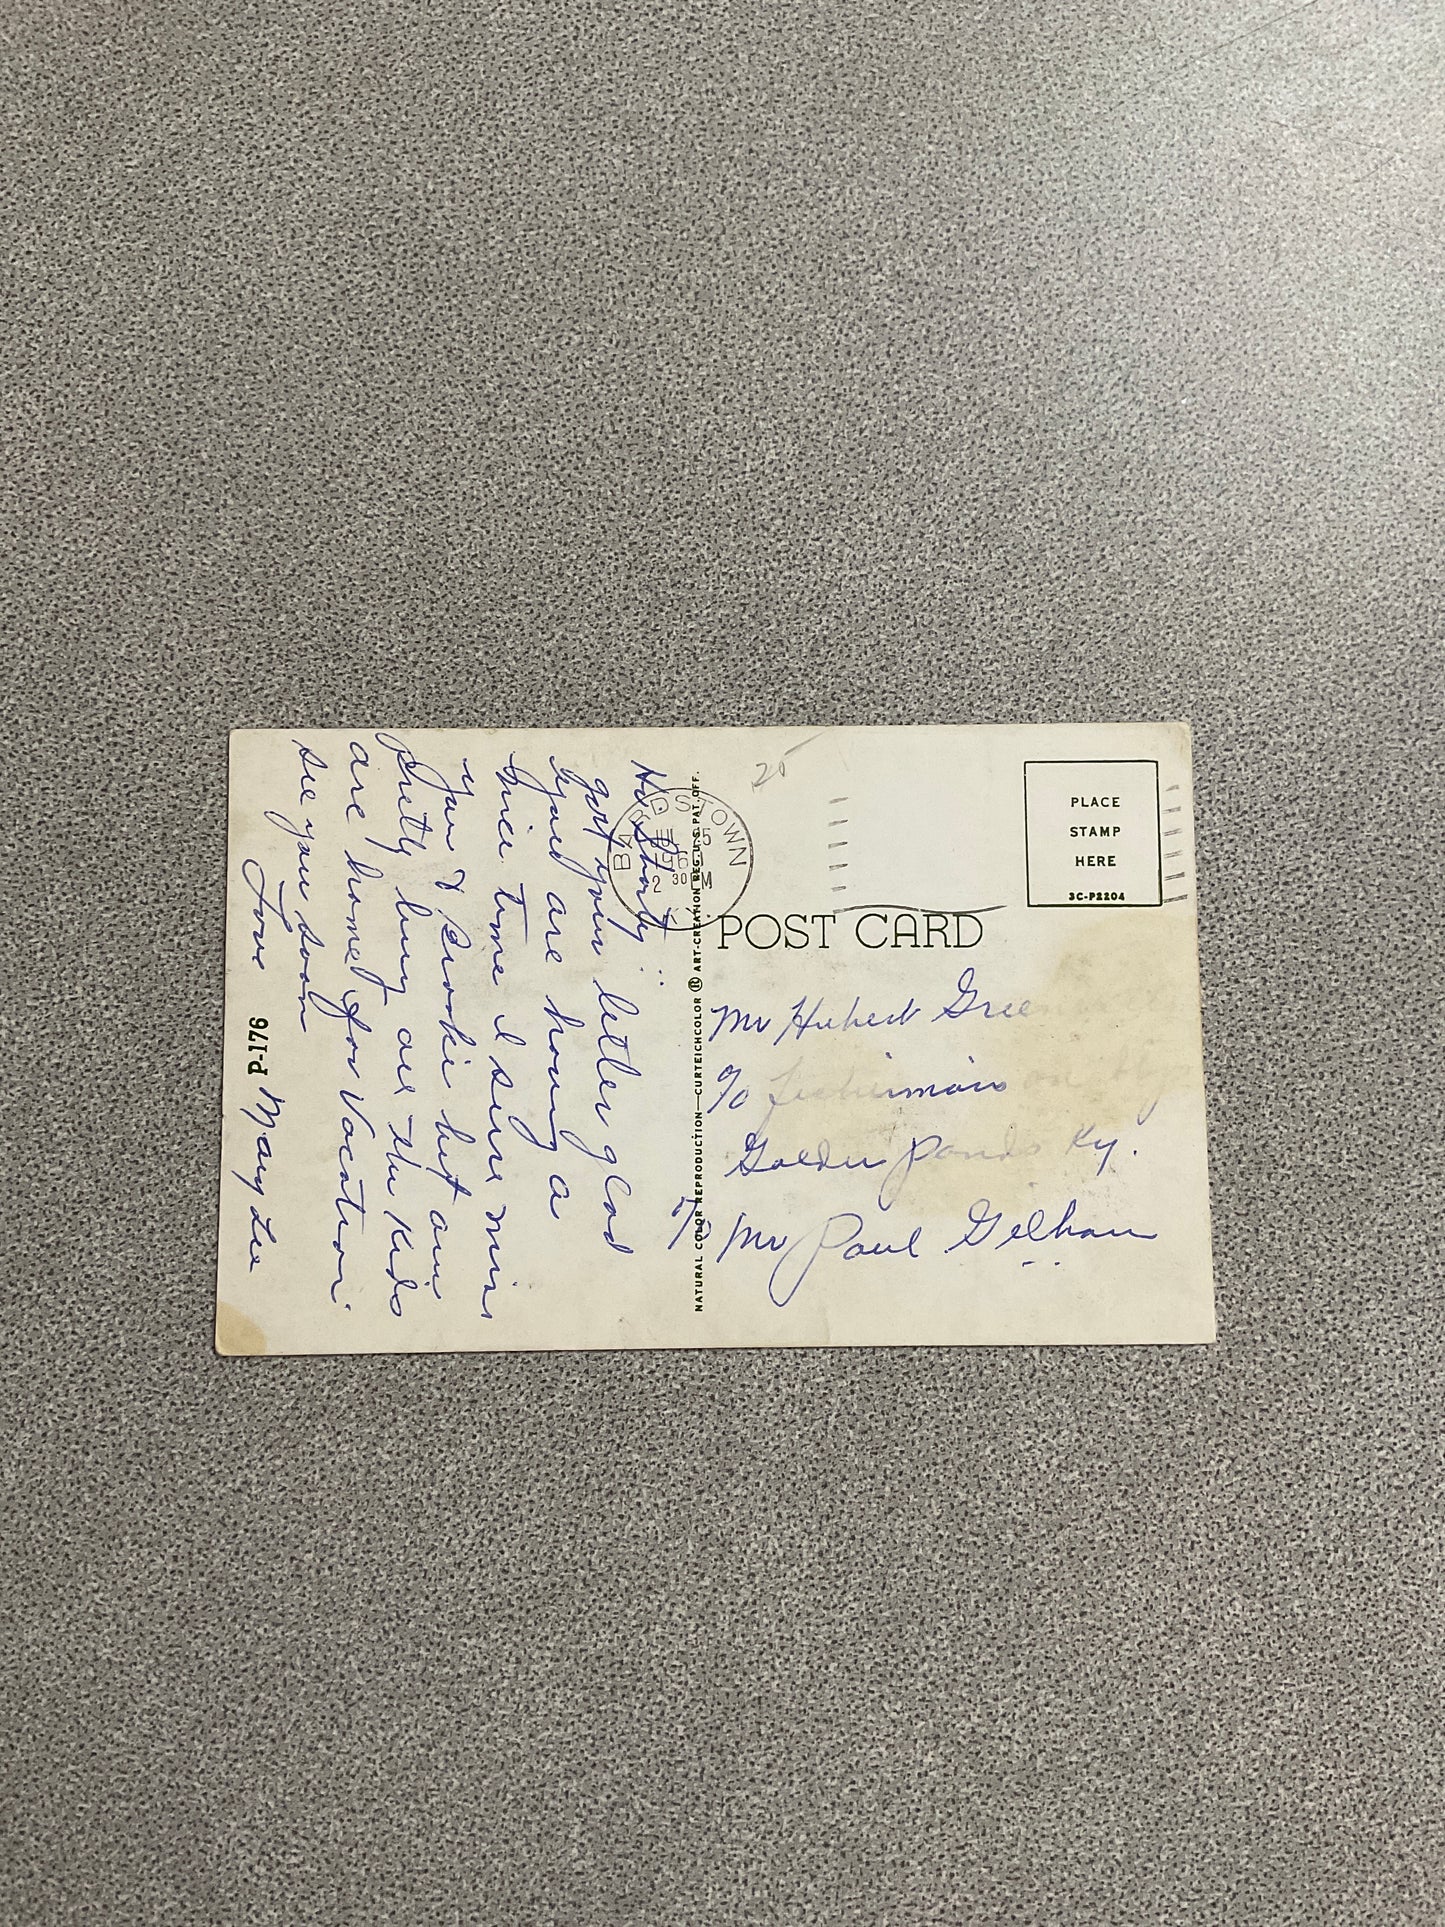 Hi Shorty:
got your letter glad
you are having a
nice time I sure miss
you & Brookie but am
Pretty busy all the kids
are home for Vacation.
see you soon
Love
Mary Lee
P-176
NATURAL COLOR REPRODUCTION—CURTEICHCOLOR ® ART-CREATION REG. U.S. PAT. OFF.
BARDSTOWN
2 30 PM
25
PLACE
STAMP
HERE
3C-P2204
POST CARD
Mr Hubert Gree
c/o
Golden Ponds Ky.
c/o Mr Paul Gelham